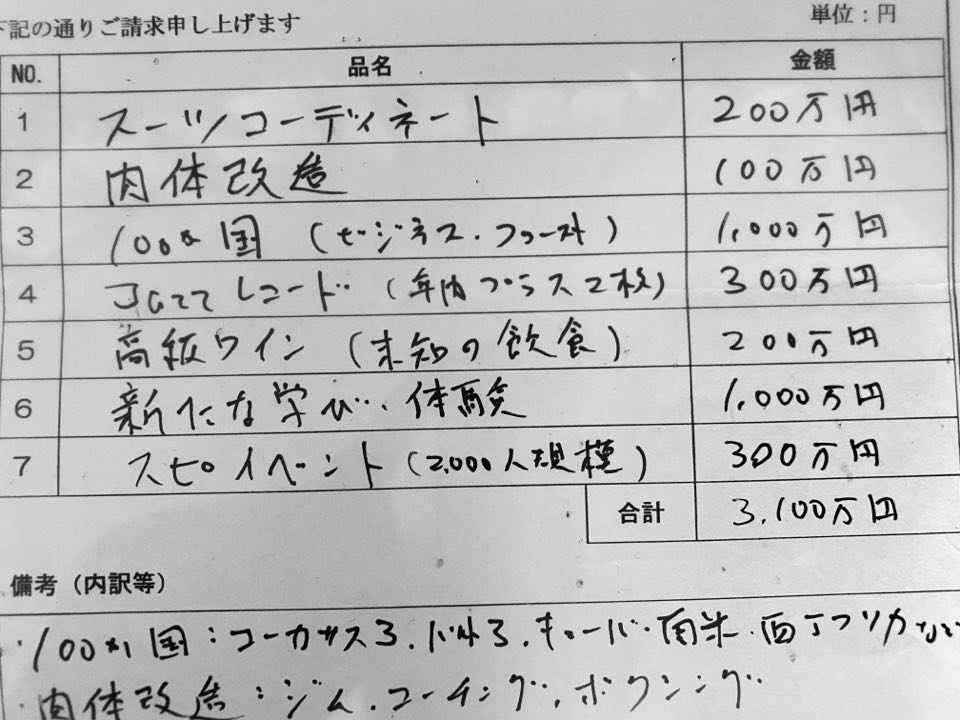 下記の通りご請求申し上げます
単位：円
NO. 品名 金額
1 スーツコーディネート 200万円
2 肉体改造 100万円
3 100ヵ国（ビジネス・ファースト） 1,000万円
4 Jazzレコード（年内プラス2枚） 300万円
5 高級ワイン（未知の飲食） 200万円
6 新たな学び・体験 1,000万円
7 スピイベント（2,000人規模） 300万円
合計 3,100万円
備考（内訳等）
・100ヵ国：コーカサス3、バルト3、キューバ・南米・西アフリカなど
・肉体改造：ジム、コーチング、ボクシング